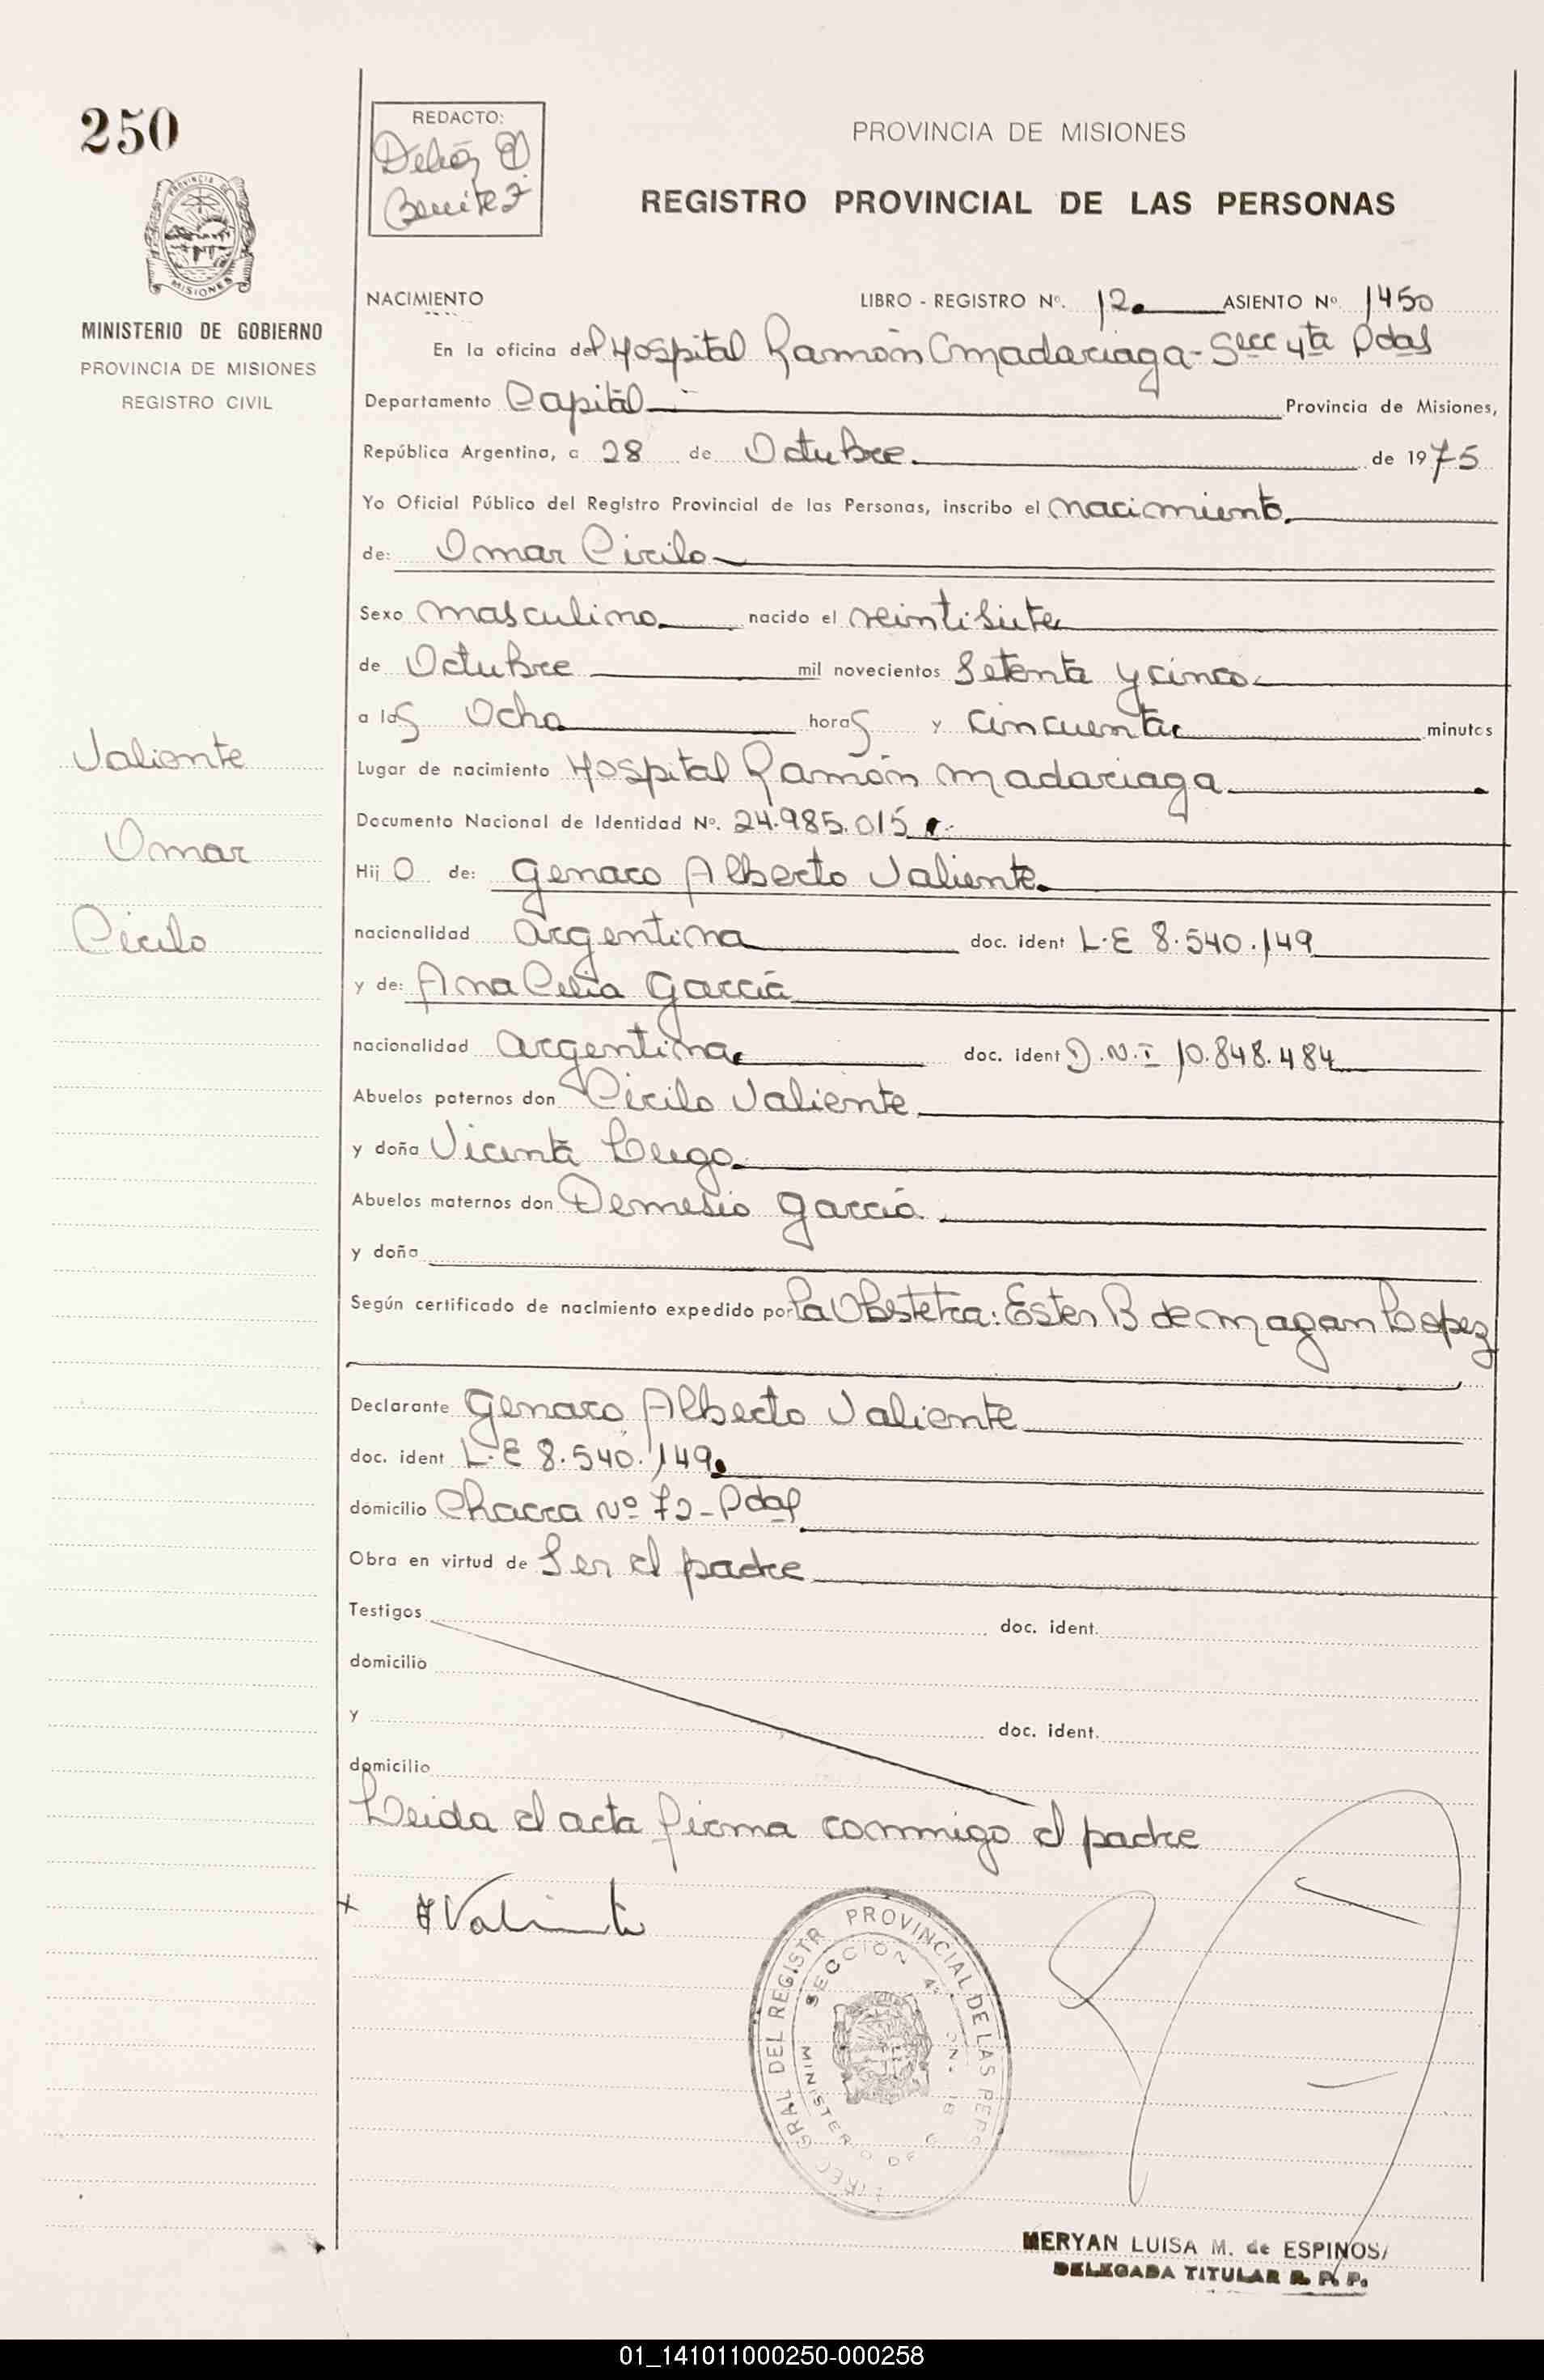 250
REDACTO:
Delia
Benitez
PROVINCIA DE MISIONES
REGISTRO PROVINCIAL DE LAS PERSONAS
PROVINCIA DE MISIONES
MINISTERIO DE GOBIERNO
PROVINCIA DE MISIONES
REGISTRO CIVIL
NACIMIENTO LIBRO - REGISTRO Nº. 12 ASIENTO Nº 1450
En la oficina del Hospital Ramón Madariaga - Secc 4ta Pdas
Departamento Capital Provincia de Misiones,
República Argentina, a 28 de Octubre de 1975
Yo Oficial Público del Registro Provincial de las Personas, inscribo el nacimiento
de: Omar Cirilo
Sexo masculino nacido el veintisiete
de Octubre mil novecientos Setenta y cinco
a las Ocho horas y cincuenta minutos
Valiente
Omar
Cirilo
Lugar de nacimiento Hospital Ramón Madariaga
Documento Nacional de Identidad Nº. 24.985.015
Hijo de: Genaro Alberto Valiente
nacionalidad argentina doc. ident L.E 8.540.149
y de: Ana Celia García
nacionalidad argentina doc. ident D.N.I 10.848.484
Abuelos paternos don Cirilo Valiente
y doña Vicenta Lugo
Abuelos maternos don Demesio García
y doña
Según certificado de nacimiento expedido por la Obstetra: Ester B de Magan Lopez
Declarante Genaro Alberto Valiente
doc. ident L.E 8.540.149
domicilio Chacra Nº 72 - Pdas
Obra en virtud de Ser el padre
Testigos doc. ident.
domicilio
y doc. ident.
domicilio
Leida el acta firma conmigo el padre
x Valiente
GRAL DEL REGISTR PROVINCIAL DE LAS PERS
SECCION 4ª
MINISTERIO DE G
MERYAN LUISA M. de ESPINOS
DELEGADA TITULAR R. P. P.
01_141011000250-000258